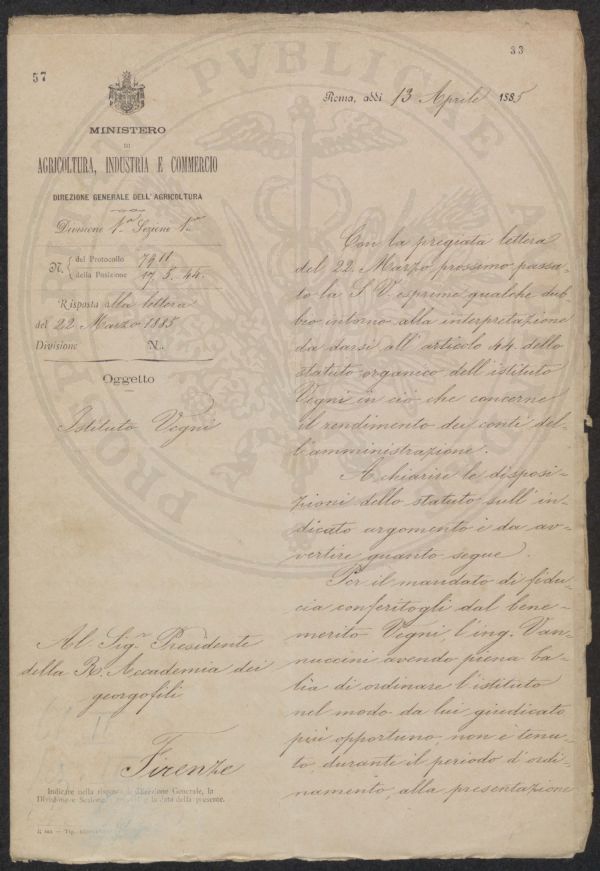 57
33
MINISTERO
DI
AGRICOLTURA, INDUSTRIA E COMMERCIO
DIREZIONE GENERALE DELL'AGRICOLTURA
Divisione 1ª Sezione 1ª
N. del Protocollo 7911
della Posizione 17. 5. 44.
Risposta alla lettera
del 22 Marzo 1885
Divisione N.
Oggetto
Istituto Vegni
Al Sig.r Presidente
della R. Accademia dei
georgofili
Firenze
Indicare nella risposta la Direzione Generale, la
Divisione e Sezione, e la data della presente.
Roma, addì 13 Aprile 1885
Con la pregiata lettera
del 22 Marzo prossimo passa-
to la S. V. esprime qualche dub-
bio intorno alla interpretazione
da darsi all'articolo 44 dello
statuto organico dell'istituto
Vegni in ciò che concerne
il rendimento dei conti del-
l'amministrazione.
A chiarire le disposi-
zioni dello statuto sull'in-
dicato argomento è da av-
vertire quanto segue.
Per il mandato di fidu-
cia conferitogli dal bene-
merito Vegni, l'ing. Van-
nuccini avendo piena ba-
lìa di ordinare l'istituto
nel modo da lui giudicato
più opportuno, non è tenu-
to, durante il periodo d'ordi-
namento, alla presentazione
PVBLICAE
PROSPERITATI